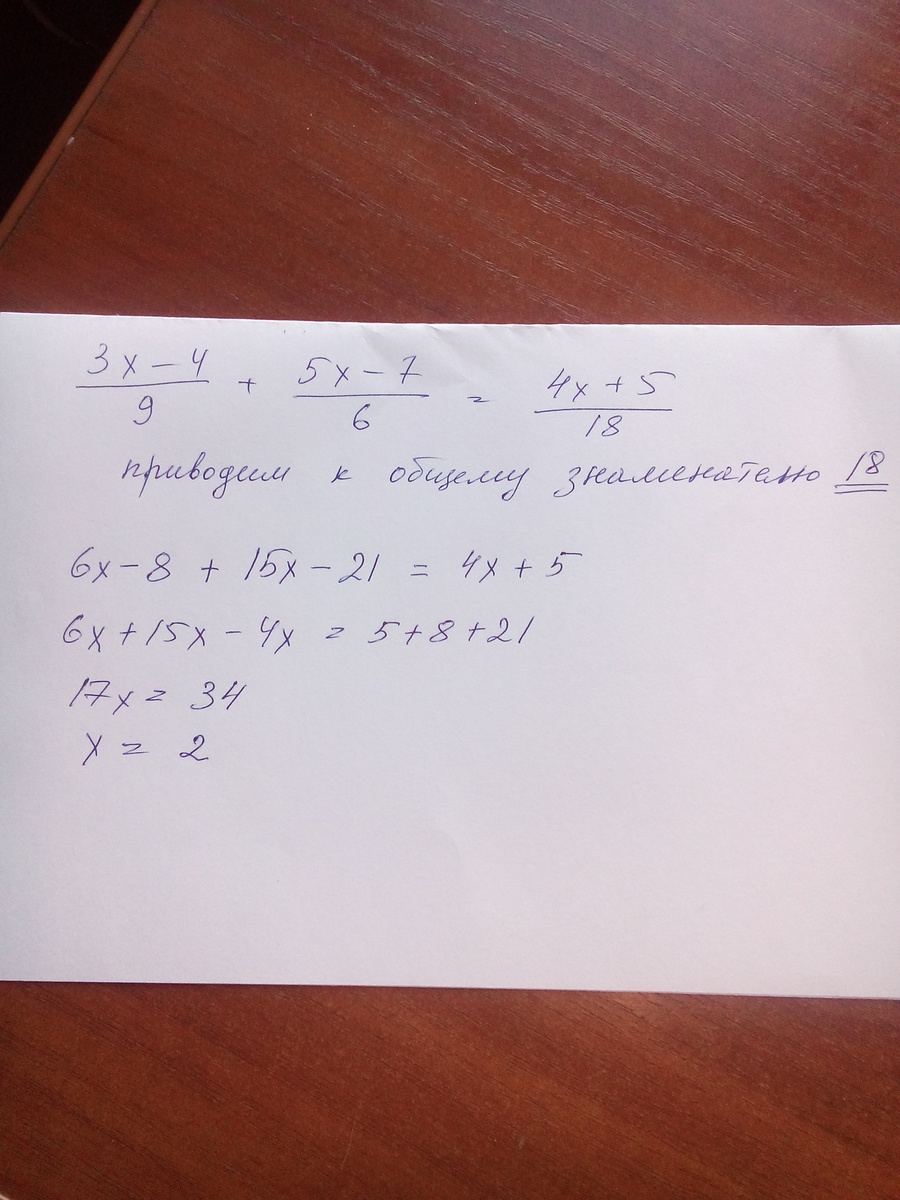 3x-4/9 + 5x-7/6 = 4x+5/18
приводим к общему знаменателю 18
6x-8 + 15x-21 = 4x+5
6x+15x-4x = 5+8+21
17x = 34
x = 2